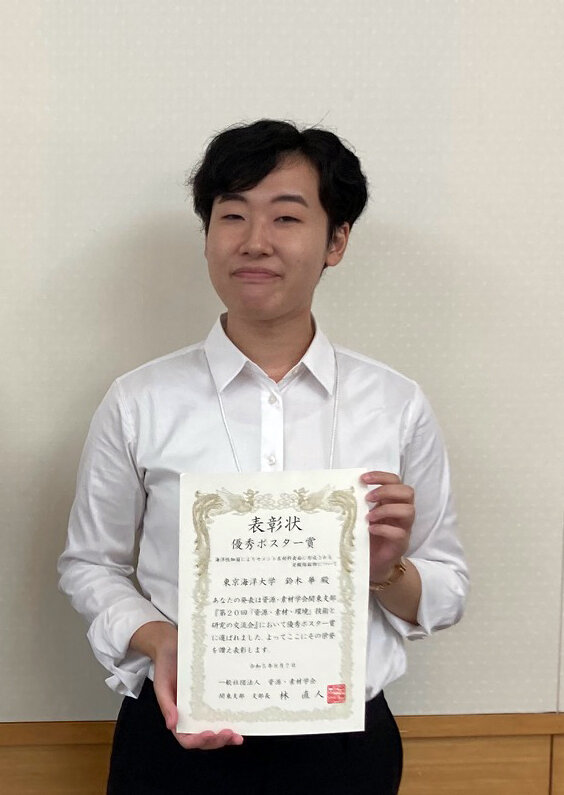 表彰状
優秀ポスター賞
東京海洋大学 鈴木 華 殿
あなたの発表は資源・素材学会関東支部
『第20回「資源・素材・環境」技術と
研究の交流会』において優秀ポスター賞
に選ばれました。よってここにその学業
を讃え表彰します。
一般社団法人 資源・素材学会
関東支部 支部長 林 直人